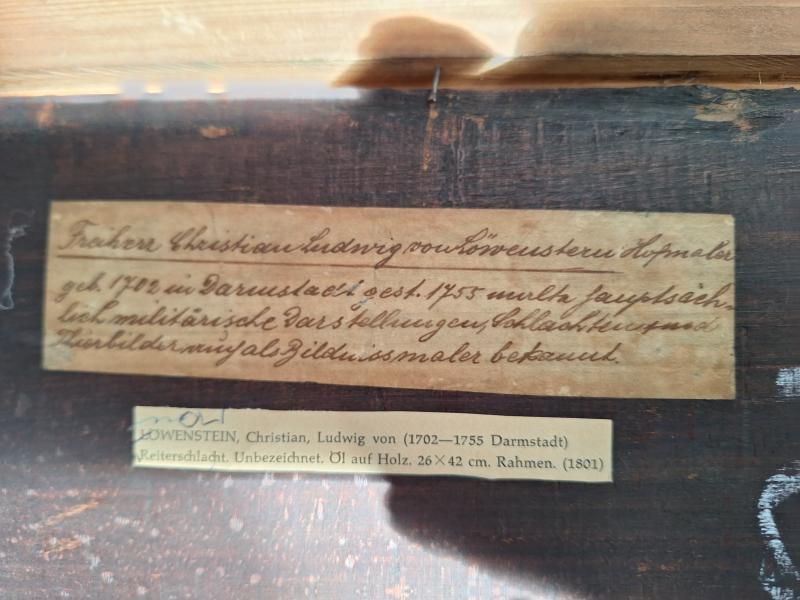 Freiherr Christian Ludwig von Löwenstern Hofmaler
geb. 1702 in Darmstadt gest. 1755 malte hauptsäch-
lich militärische Darstellungen, Schlachten und
Thierbilder, auch als Bildnissmaler bekannt.
LÖWENSTEIN, Christian, Ludwig von (1702—1755 Darmstadt)
Reiterschlacht. Unbezeichnet. Öl auf Holz. 26×42 cm. Rahmen. (1801)